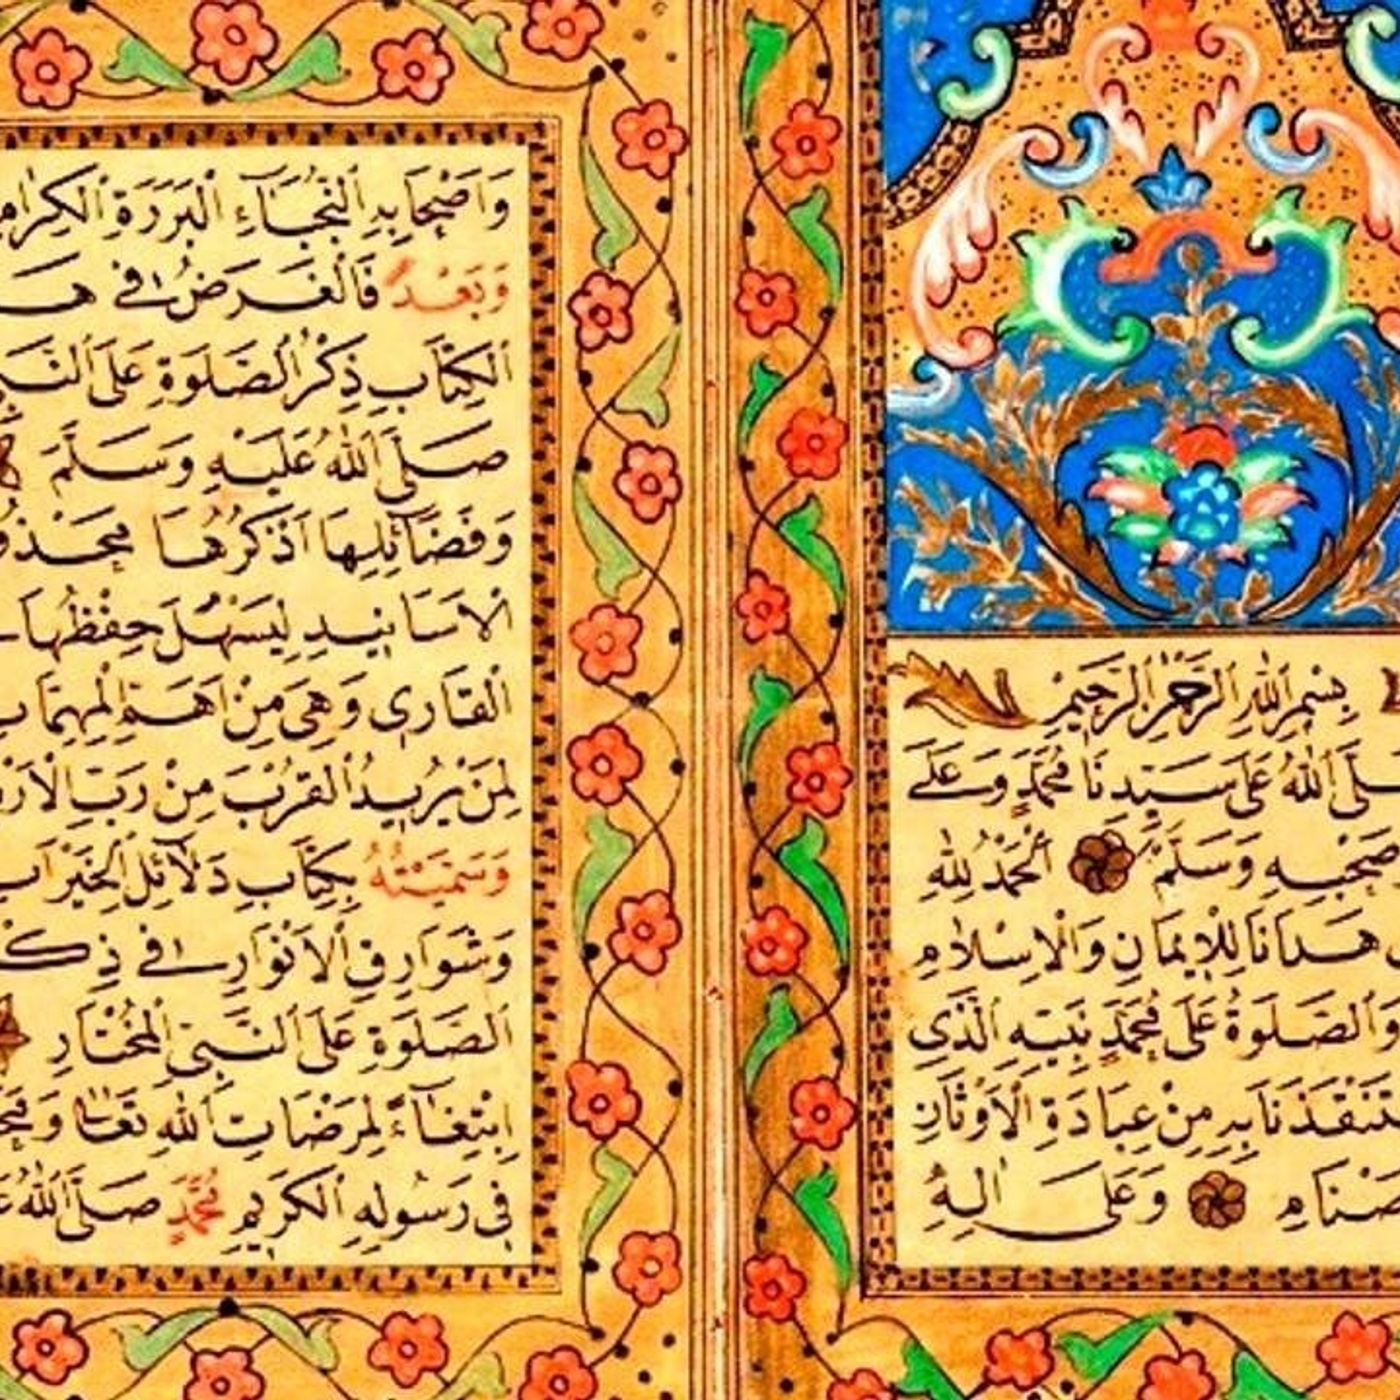 بِسْمِ اللّٰهِ الرَّحْمٰنِ الرَّحِيمِ
اللّٰهُ عَلَى سَيِّدِنَا مُحَمَّدٍ وَعَلَى
وَصَحْبِهِ وَسَلَّمَ اَلْحَمْدُ لِلّٰهِ
هَدَانَا لِلْاِيمَانِ وَالْاِسْلَامِ
وَالصَّلٰوةُ عَلَى مُحَمَّدٍ نَبِيِّهِ الَّذِى
بِهِ مِنْ عِبَادَةِ الْاَوْثَانِ
وَعَلَى اٰلِهِ
وَاَصْحَابِهِ النُّجَبَاءِ الْبَرَرَةِ الْكِرَامِ
وَبَعْدُ فَالْغَرَضُ فِى
الْكِتَابِ ذِكْرُ الصَّلٰوةِ عَلَى
صَلَّى اللّٰهُ عَلَيْهِ وَسَلَّمَ
وَفَضَائِلِهَا اَذْكُرُهَا
الْاَسَانِيدِ لِيَسْهُلَ حِفْظُهَا
الْقَارِى وَهِىَ مِنْ اَهَمِّ
لِمَنْ يُرِيدُ الْقُرْبَ مِنْ رَبِّ
وَسَمَّيْتُهُ بِكِتَابِ دَلَائِلِ الْخَيْرَاتِ
وَشَوَارِقِ الْاَنْوَارِ فِى
الصَّلٰوةِ عَلَى النَّبِىِّ الْمُخْتَارِ
اِبْتِغَاءً لِمَرْضَاتِ اللّٰهِ تَعَالٰى
فِى رَسُولِهِ الْكَرِيمِ مُحَمَّدٍ صَلَّى اللّٰهُ